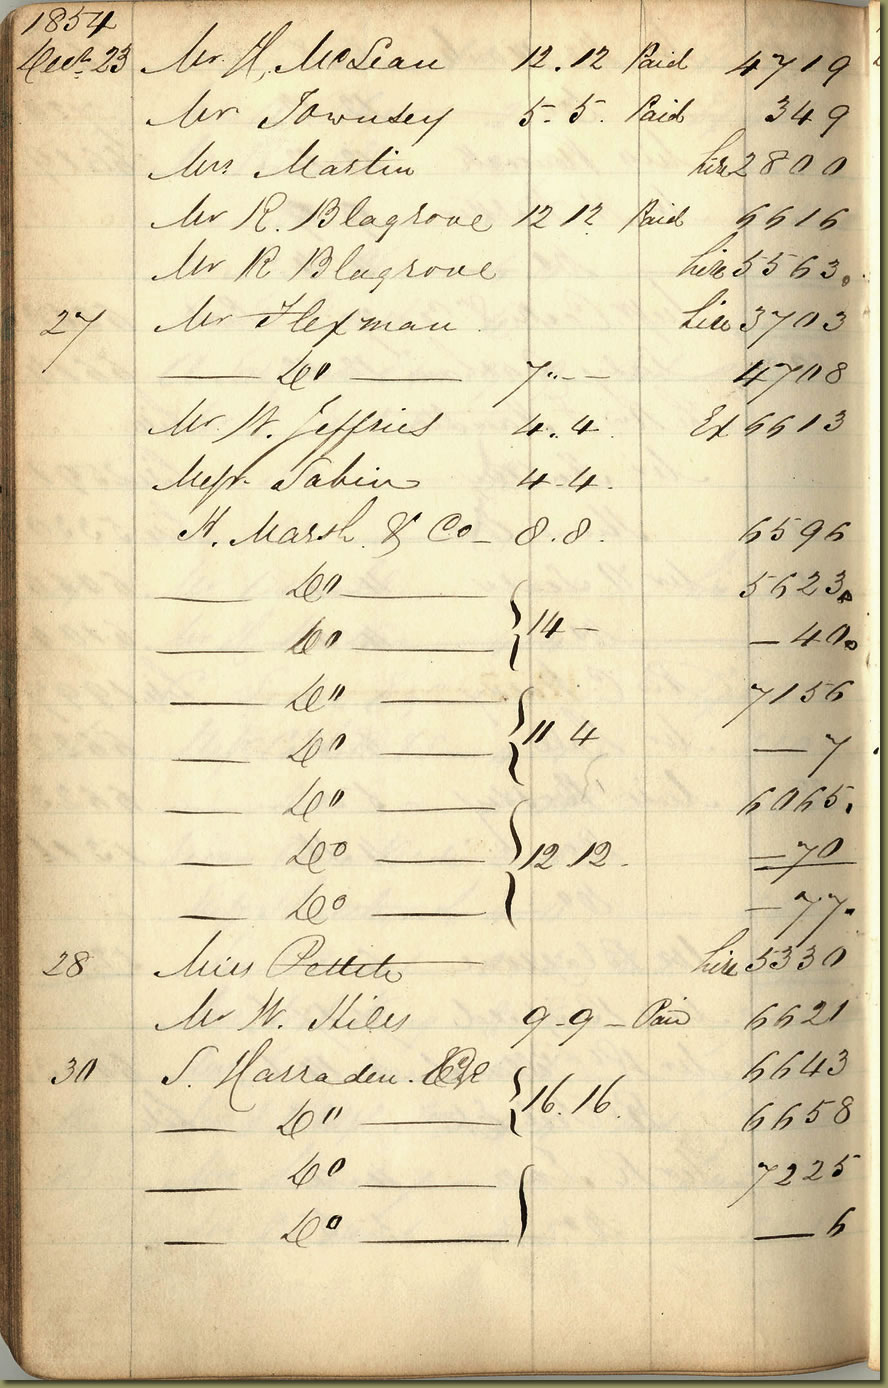 1854
Decr. 23 Mr. H. McLean 12.12 Paid 4719
Mr Townsey 5.5. Paid 349
Mrs Martin hire 2800
Mr R. Blagrove 12 12 Paid 6616
Mr R Blagrove hire 5563.
27 Mr Flexman hire 3703
— Do — 7.-- 4708
Mr. W. Jeffries 4.4. Ex 6613
Messrs. Sabin 4-4.
H. Marsh & Co- 8.8. 6596
— Do — 5623.
— Do — } 14- — 40.
— Do — 7156
— Do — } 11 4 — 7
— Do — 6065.
— Do — } 12 12. — 70
— Do — — 77.
28 Miss hire 5330
Mr W. Hiles 9-9- Paid 6621
30 S. Harraden. Esqe 6643
— Do — } 16.16. 6658
— Do — 7225
— Do — } — 6